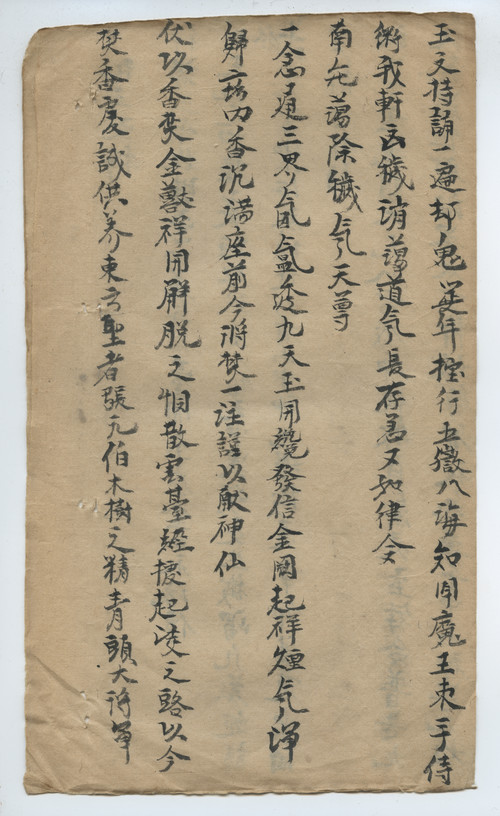 玉文持誦一遍却鬼延年按行五嶽八海知聞魔王束手侍
衛我軒凶穢消蕩道气長存急々如律令
南无蕩除穢气天尊
一念通三界氤氳透九天玉開纔發信金闕起祥煙气渾
歸功香沉满座前今將焚一注謹以献神仙
伏以香焚金獸祥開解脱之烟散雲臺經起淩之路以今
焚香虔誠供养東方聖者張九伯木樹之精青頭大將軍